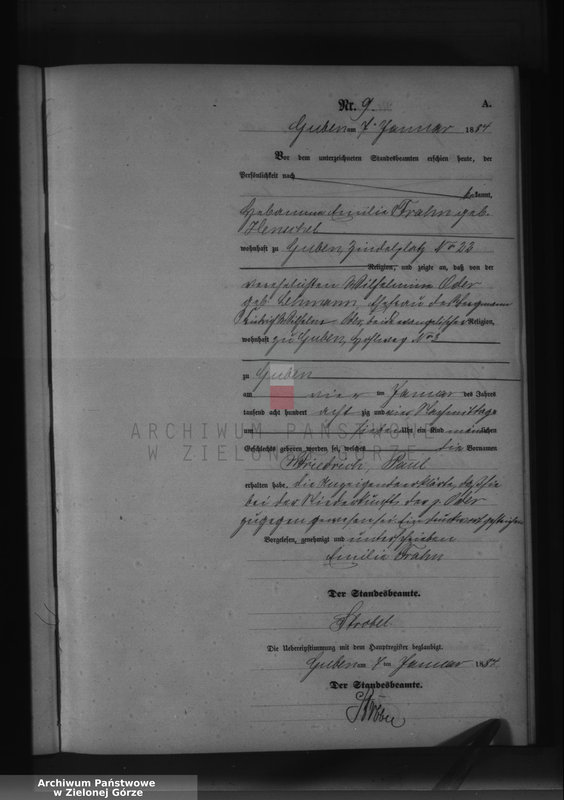 Nr. 9
A.
Guben am 7. Januar 1884
Vor dem unterzeichneten Standesbeamten erschien heute, der
Persönlichkeit nach
bekannt,
Hebamme Emilie Trahn geb.
Henschel
wohnhaft zu Guben, Zindelplatz No 23
Religion, und zeigte an, daß von der
verehelichten Wilhelmine Oder
geb. Lehmann, Ehefrau des Bergmann
Friedrich Wilhelm Oder, beide evangelischer Religion,
wohnhaft zu Guben, No 3
zu Guben
am vier ten Januar des Jahres
tausend acht hundert acht zig und vier Nachmittags
um Uhr ein Kind männlichen
Geschlechts geboren worden sei, welches die Vornamen
Friedrich, Paul
erhalten habe. die Anzeigende erklärte, daß sie
bei der Niederkunft der p. Oder
zugegen gewesen sei. Ein Druckwort gestrichen
Vorgelesen, genehmigt und unterschrieben
Emilie Trahn
Der Standesbeamte.
Die Uebereinstimmung mit dem Hauptregister beglaubigt.
Guben am 7 ten Januar 1884
Der Standesbeamte.
ARCHIWUM PAŃSTWOWE
W ZIELONEJ GÓRZE
Archiwum Państwowe
w Zielonej Górze